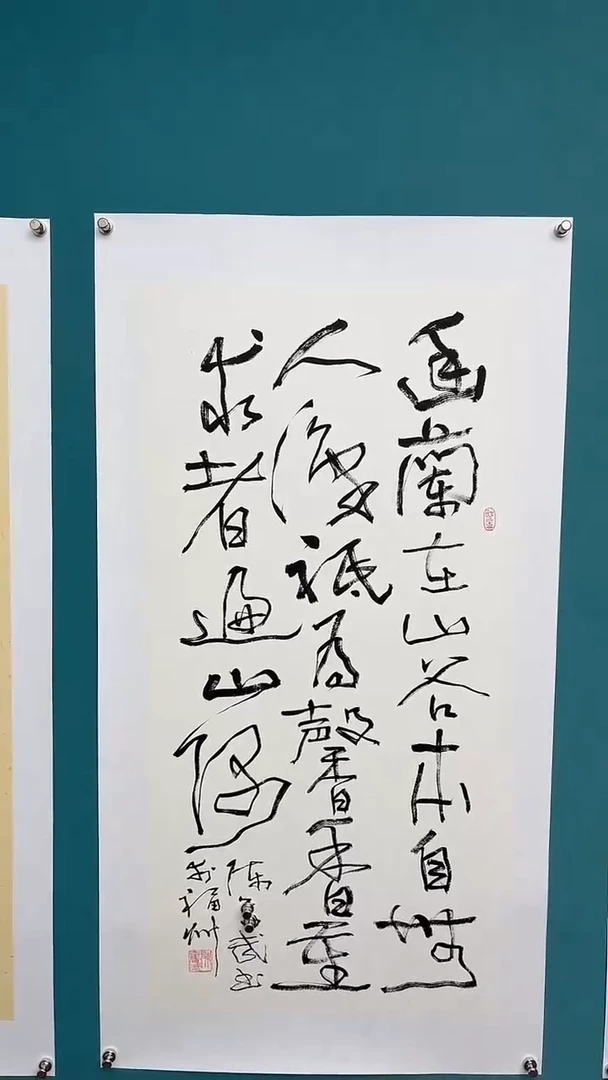 幽蘭在山谷本自無
人祗為馨香重
求者遍山隅
陳武書
於福州